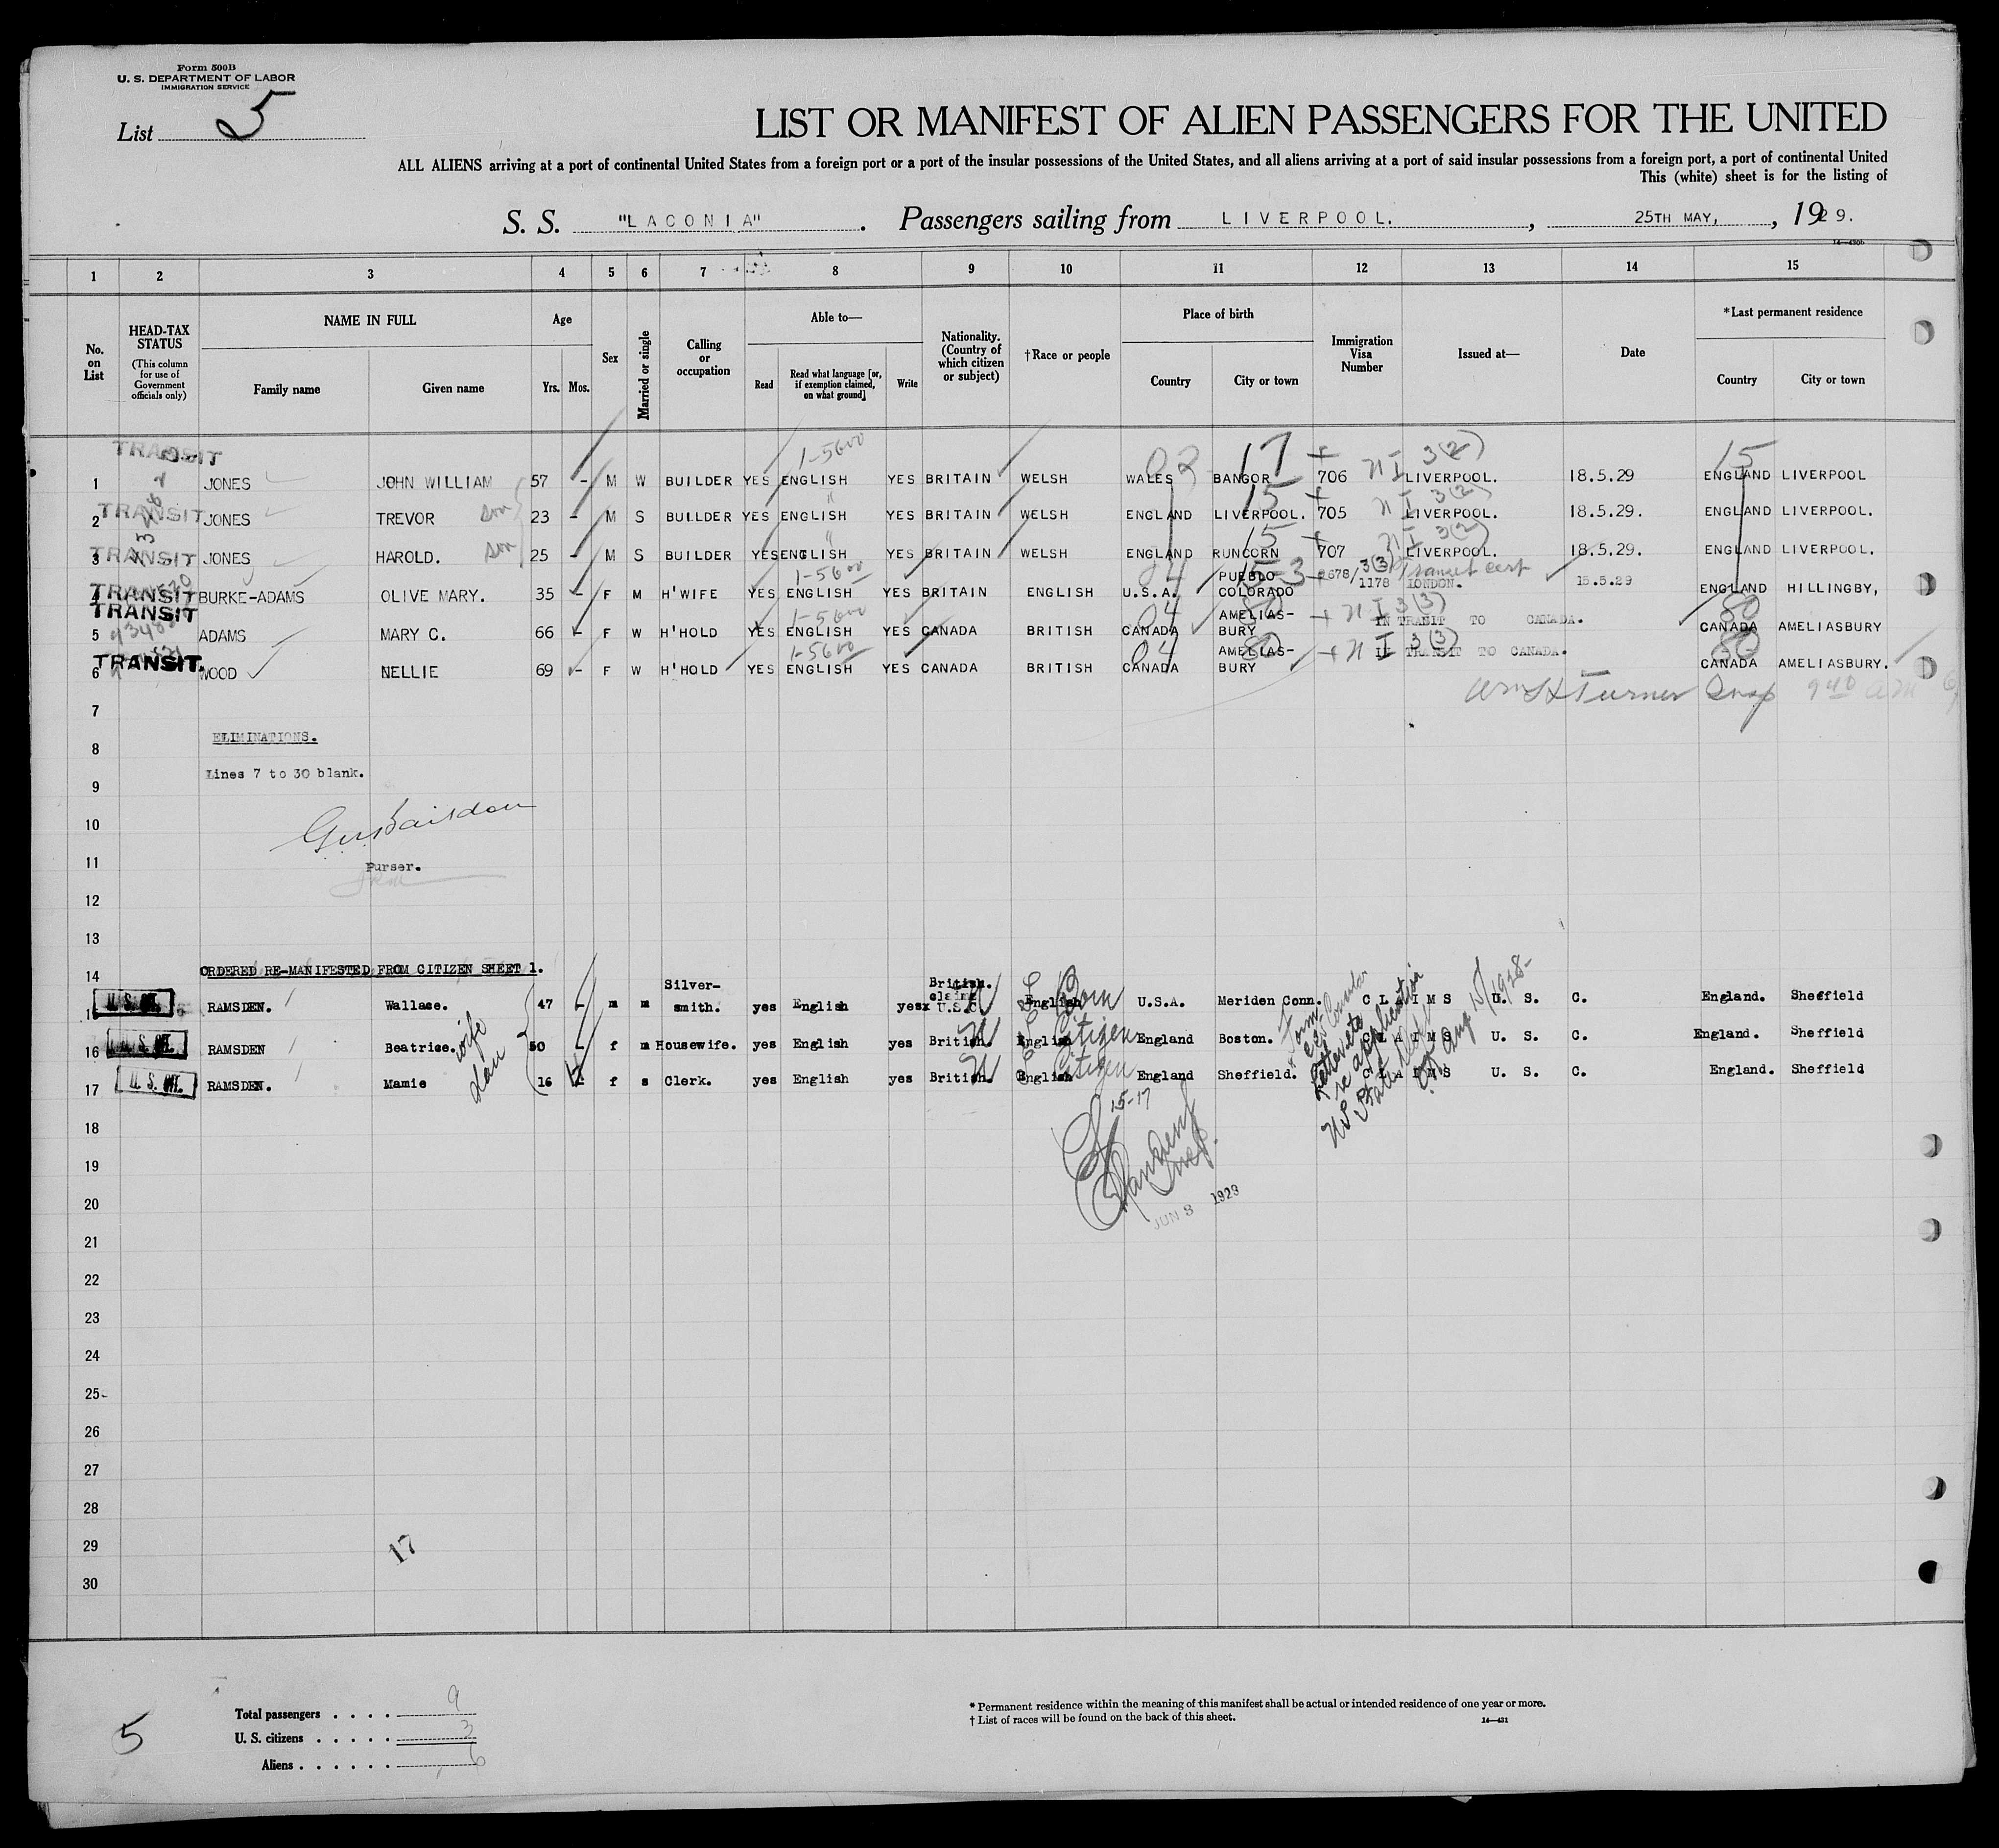 Form 500B
U. S. DEPARTMENT OF LABOR
IMMIGRATION SERVICE
List 5
LIST OR MANIFEST OF ALIEN PASSENGERS FOR THE UNITED
ALL ALIENS arriving at a port of continental United States from a foreign port or a port of the insular possessions of the United States, and all aliens arriving at a port of said insular possessions from a foreign port, a port of continental United
This (white) sheet is for the listing of
S. S. "LACONIA". Passengers sailing from LIVERPOOL., 25TH MAY, , 1929.
1 2 3 4 5 6 7 8 9 10 11 12 13 14 15
No. on List
HEAD-TAX STATUS (This column for use of Government officials only)
NAME IN FULL Family name Given name
Age Yrs. Mos.
Sex
Married or single
Calling or occupation
Able to— Read Read what language [or, if exemption claimed, on what ground] Write
Nationality. (Country of which citizen or subject)
†Race or people
Place of birth Country City or town
Immigration Visa Number
Issued at—
Date
*Last permanent residence Country City or town
TRANSIT 1-5600 02 17 + NI 3(2) 15
1 JONES JOHN WILLIAM 57 - M W BUILDER YES ENGLISH YES BRITAIN WELSH WALES BANGOR 706 LIVERPOOL. 18.5.29 ENGLAND LIVERPOOL
TRANSIT " 15 + NI 3(2)
2 JONES TREVOR son 23 - M S BUILDER YES ENGLISH YES BRITAIN WELSH ENGLAND LIVERPOOL. 705 LIVERPOOL. 18.5.29. ENGLAND LIVERPOOL.
TRANSIT " 15 + NI 3(2)
3 JONES HAROLD. son 25 - M S BUILDER YES ENGLISH YES BRITAIN WELSH ENGLAND RUNCORN 707 LIVERPOOL. 18.5.29. ENGLAND LIVERPOOL.
TRANSIT 1-5600 04 15-3 3(3) Transit cert
4 BURKE-ADAMS OLIVE MARY. 35 - F M H'WIFE YES ENGLISH YES BRITAIN ENGLISH U.S.A. PUEBLO COLORADO 2678/1178 LONDON. 15.5.29 ENGLAND HILLINGBY,
TRANSIT 1-5600 04 80 + NI 3(3) 80
5 ADAMS MARY C. 66 - F W H'HOLD YES ENGLISH YES CANADA BRITISH CANADA AMELIAS-BURY IN TRANSIT TO CANADA. CANADA AMELIASBURY
TRANSIT. 1-5600 04 80 + NI 3(3) 80
6 WOOD NELLIE 69 - F W H'HOLD YES ENGLISH YES CANADA BRITISH CANADA AMELIAS-BURY IN TRANSIT TO CANADA. CANADA AMELIASBURY.
Wm H Turner Insp 940 am
7
8 ELIMINATIONS.
9 Lines 7 to 30 blank.
10
11 Purser.
12
13
14 ORDERED RE-MANIFESTED FROM CITIZEN SHEET 1.
15 RAMSDEN. Wallace. 47 - m m Silver-smith. yes English yes British. claims U.S.C. English Born U.S.A. Meriden Conn. CLAIMS U. S. C. England. Sheffield
16 RAMSDEN Beatrice. wife 50 - f m Housewife. yes English yes British. English Citizen England Boston. CLAIMS U. S. C. England. Sheffield
17 U. S. CIT. RAMSDEN. Mamie dau 16 - f s Clerk. yes English yes British. English Citizen England Sheffield. CLAIMS U. S. C. England. Sheffield
15-17
Insp.
JUN 3 1929
18
19
20
21
22
23
24
25
26
27
28
29
30
17
5
Total passengers . . . . 9
U. S. citizens . . . . . 3
Aliens . . . . . . 6
* Permanent residence within the meaning of this manifest shall be actual or intended residence of one year or more.
† List of races will be found on the back of this sheet.
14—431